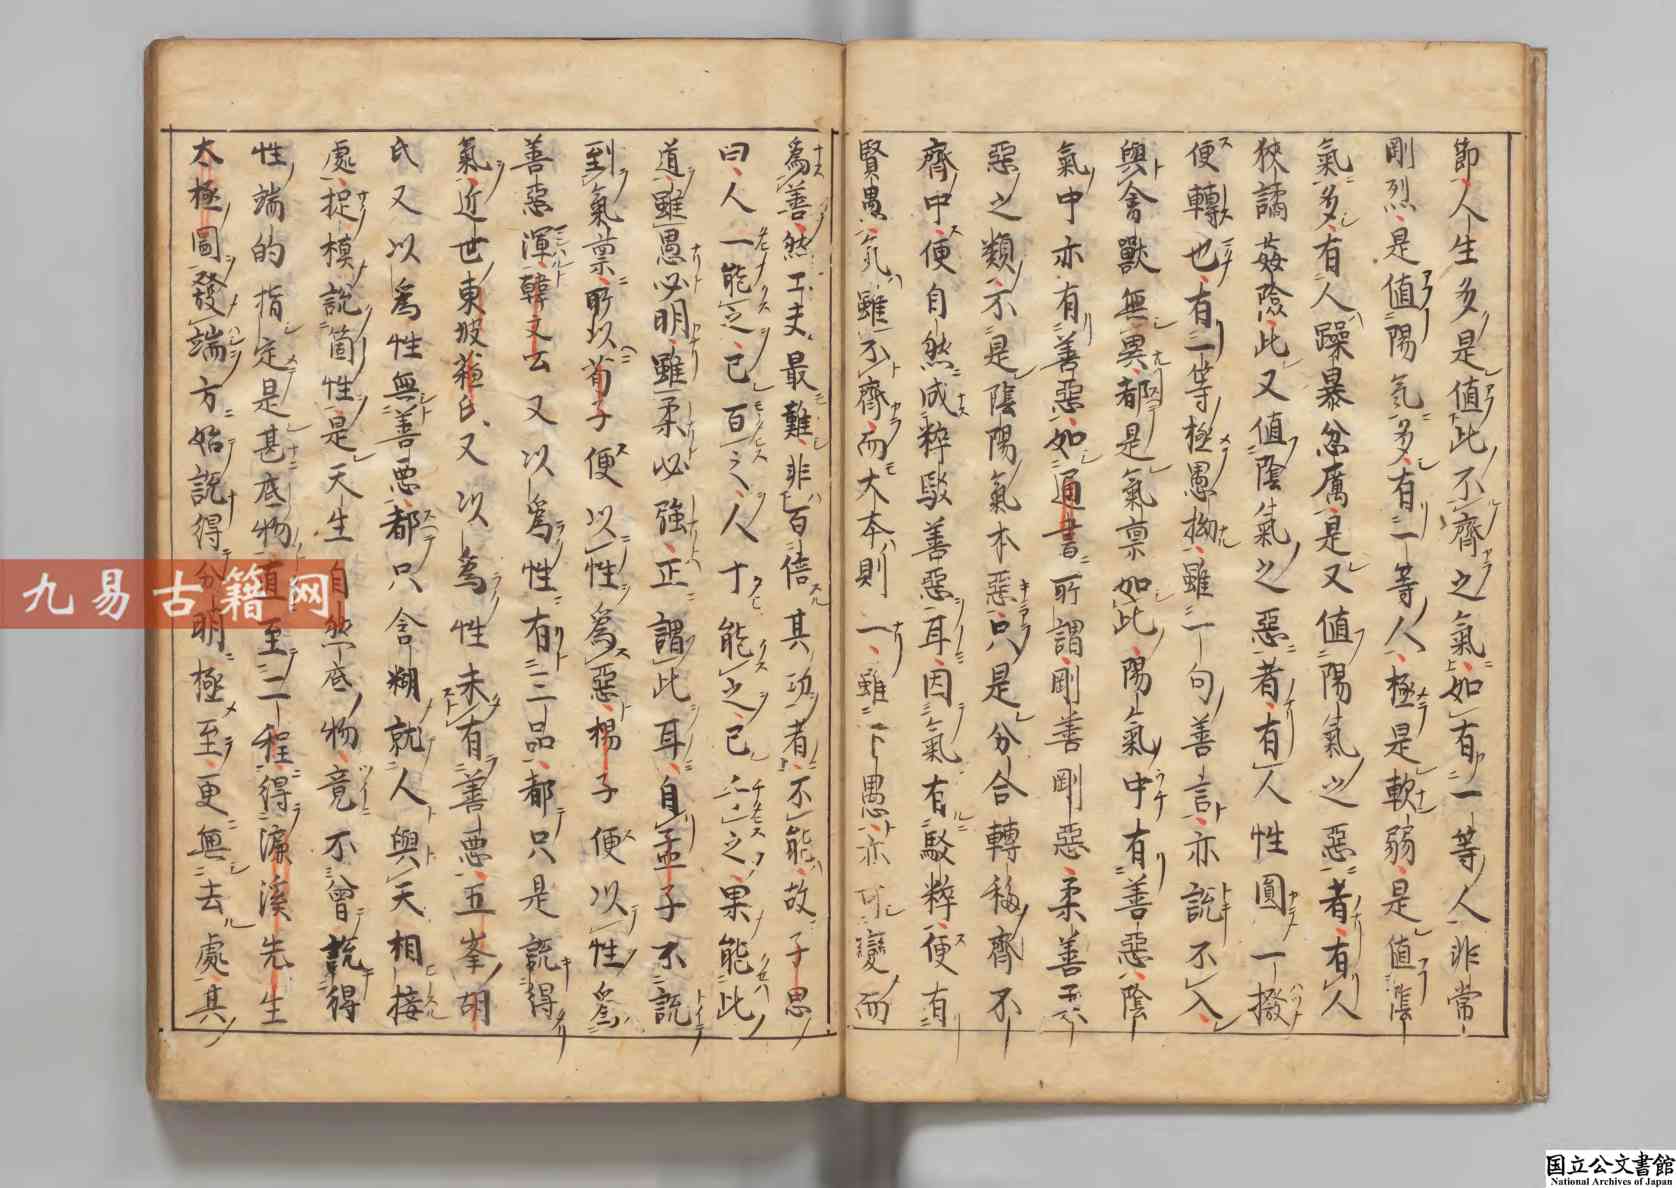 節人生多是値此不齊之氣如有一等人非常
剛烈是値陽気多有一等人極是軟弱是値陰
氣多有人躁暴忿厲是又値陽氣之惡者有人
狡譎姦險此又値陰氣之惡者有人性圓一撥
便轉也有一等極愚拗雖一句善言亦說不入
與禽獸無異都是氣禀如此陽氣中有善惡陰
氣中亦有善惡如通書所謂剛善剛惡柔善柔
惡之類不是陰陽氣本惡只是分合轉移齊不
齊中便自然成粹駁善惡耳因氣有駁粹便有
賢愚気雖不齊而大本則一雖下愚亦可變而
爲善然工夫最難非百倍其功者不能故子思
曰人一能之己百之人十能之己千之果能此
道雖愚必明雖柔必強正謂此耳自孟子不說
到氣禀所以荀子便以性爲惡楊子便以性爲
善惡渾韓文云又以爲性有三品都只是說得
氣近世東坡蘓氏又以爲性未有善悪五峯胡
氏又以爲性無善悪都只含糊就人與天相接
處捉模說箇性是天生自然底物竟不曾說得
性端的指定是甚底物直至二程得濂溪先生
太極圖發端方始説得分明極至更無去處其
九易古籍网
国立公文書館
National Archives of Japan